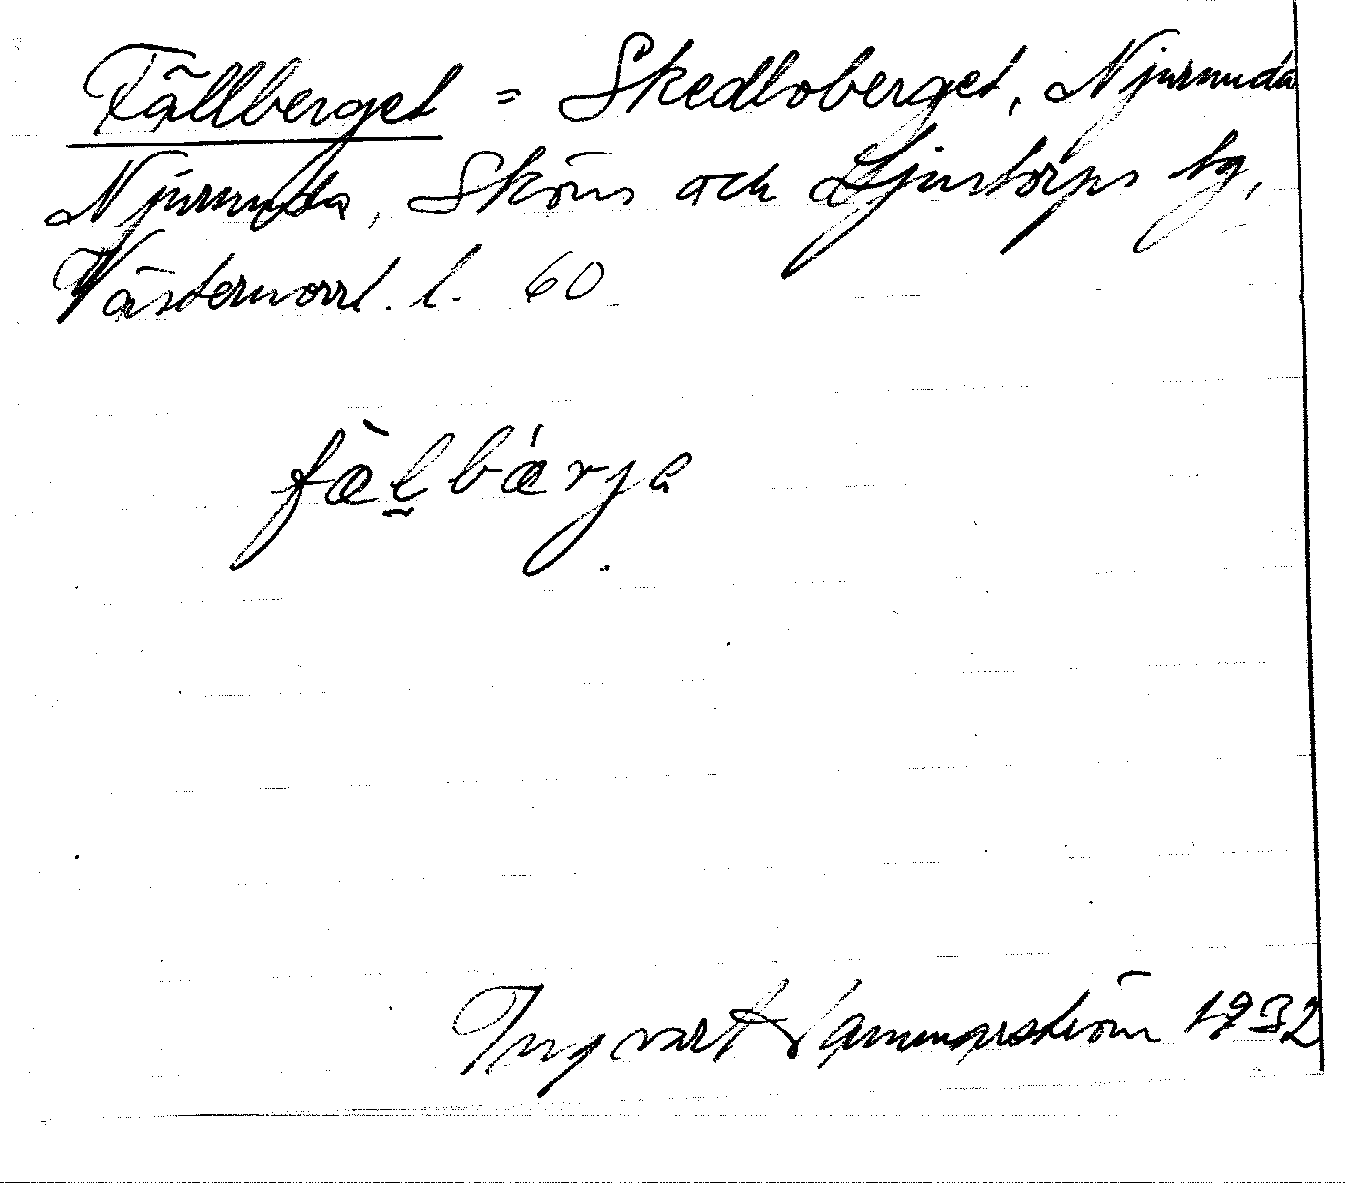 Fällberget = Skedloberget, Njurunda
Njurunda, Sköns och Ljustorps tg,
Västernorrl. l. 60
fæ̀lbǽrja
Ingvart Hammarström 1932